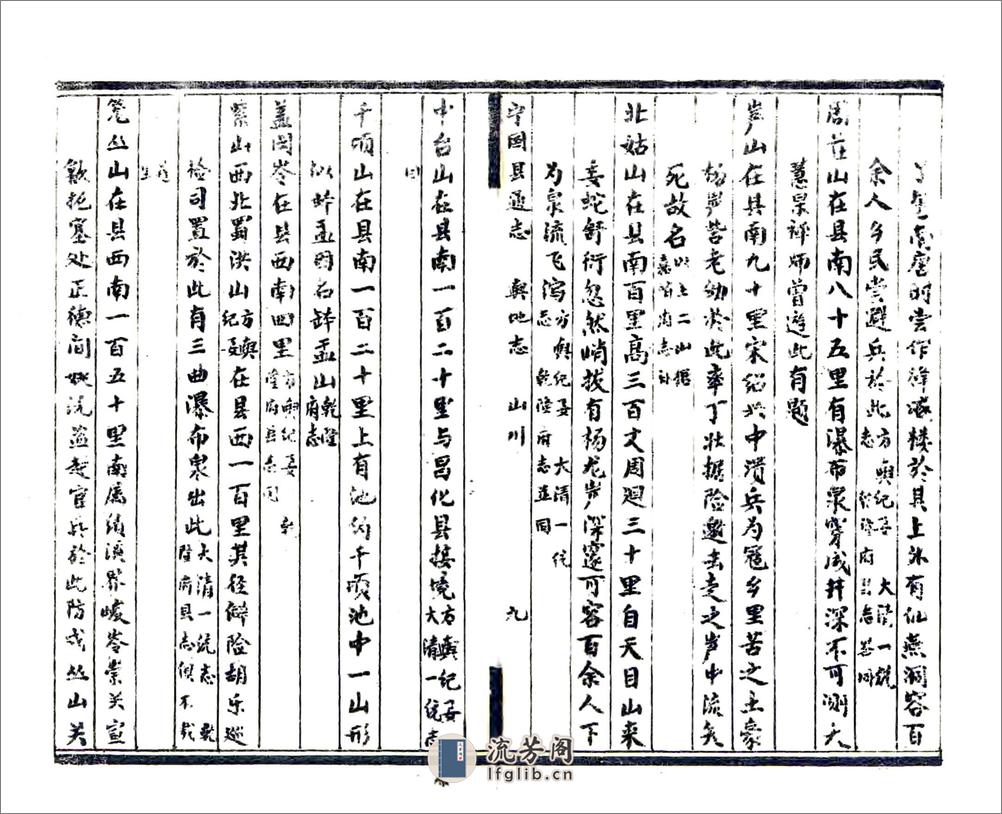 作禅诵楼於其上外有仙燕洞容百
余人乡民尝避兵於此方舆纪要 大清一统志
周茳山在县南八十五里有瀑布泉穿成井深不可测大
慧杲禅师曾游此有题
山在县南九十里宋绍兴中溃兵为寇乡里苦之土豪
老幼於此率丁壮据险邀击走之岩中流矢
死故名以上二山据
北姑山在县南百里高三百丈周廻三十里自天目山来
委蛇舒衍忽然峭拔有杨龙岩深邃可容百余人下
为泉流飞泻方舆纪要 大清一统志 乾隆府志並同
宁国县通志 舆地志 山川 九
中台山在县南一百二十里与昌化县接境方舆纪要 大清一统志
同
千顷山在县南一百二十里上有池约千顷池中一山形
似钵盂因名钵盂山乾隆府志
盖冈岑在县西南四里
紫山西北蜀洪山方舆纪要在县西一百里其径解险胡乐巡
检司置於此有三曲瀑布泉出此大清一统志 乾隆府县志俱不载
笼丛山在县西南一百五十里南属绩溪界峻岺崇关宣
歙扼塞处正德间姚沅盗起官兵於此防戍丛山关
流芳阁
lfglib.cn